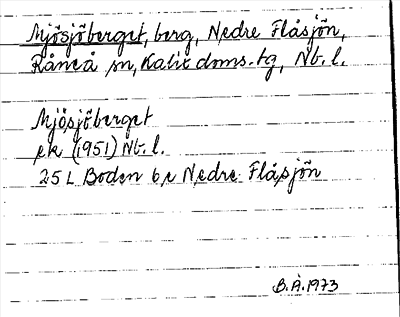 Mjösjöberget, berg, Nedre Flåsjön,
Råneå sn, Kalix doms.tg, Nb. l.
Mjösjöberget
ek (1951) Nb. l.
25 L Boden 6 e Nedre Flåsjön
B.Å. 1973